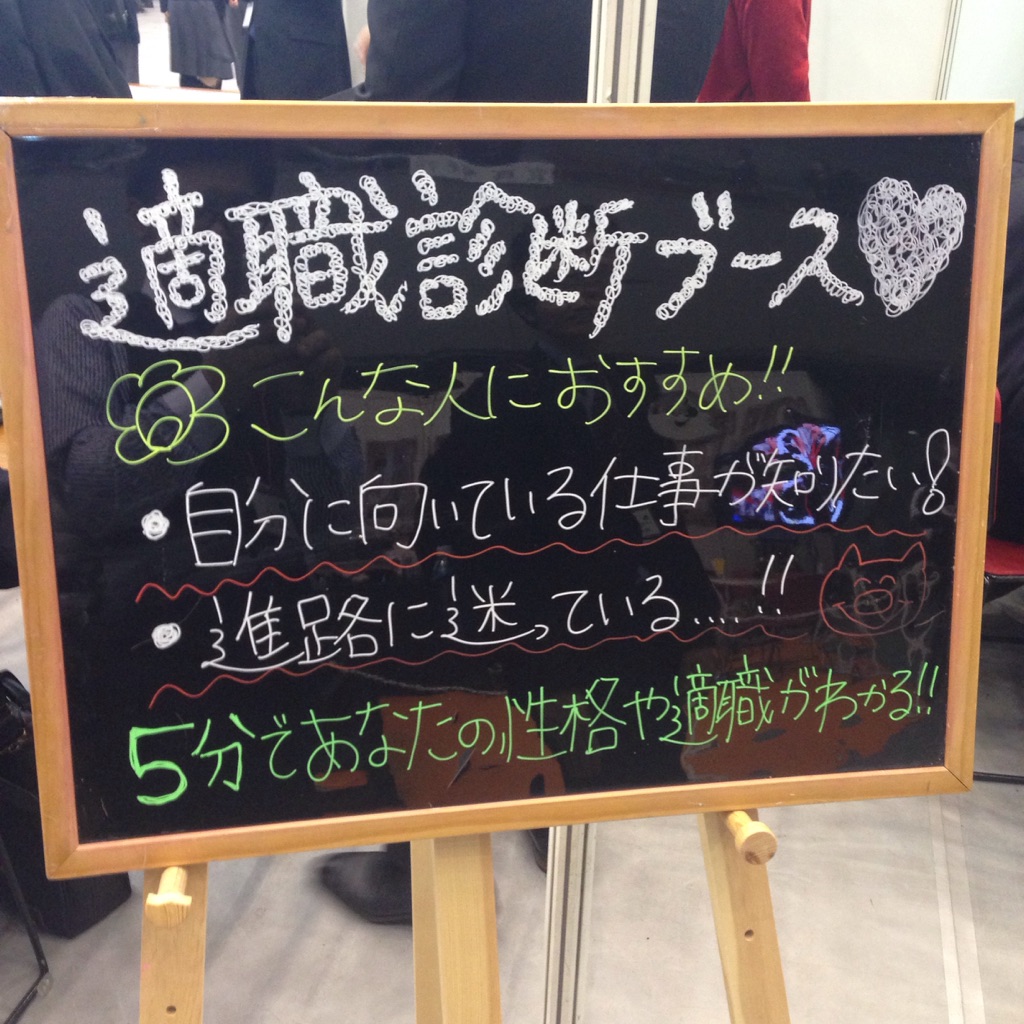 適職診断ブース
こんな人におすすめ!!
・自分に向いている仕事が知りたい!
・進路に迷っている....!!
5分であなたの性格や適職がわかる!!